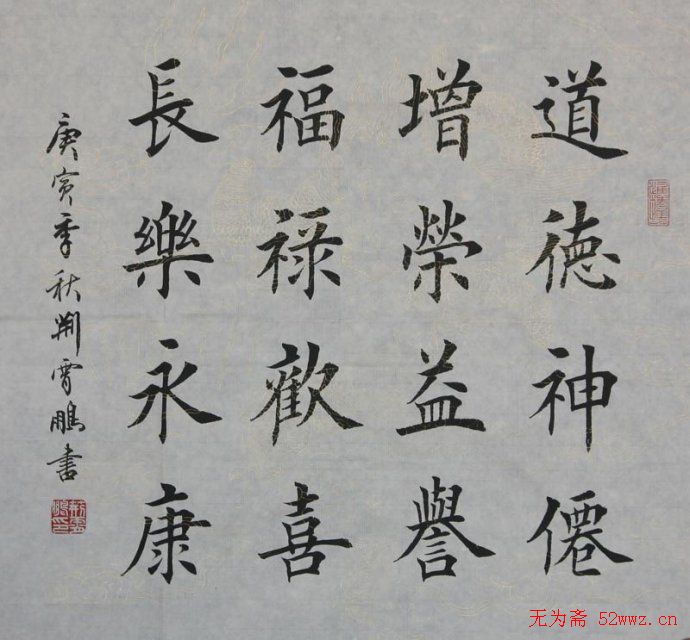 道德神僊
增榮益譽
福禄歡喜
長樂永康
庚寅季秋荆霄鵬書
无为斋 52wwz.cn